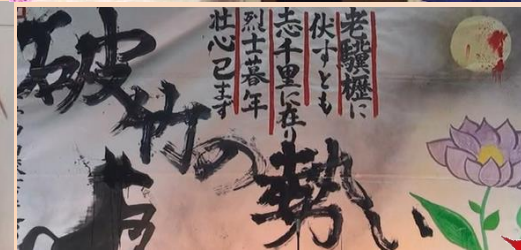 老驥櫪に
伏すとも
志千里に在り
烈士暮年
壮心已まず
破竹の
勢い